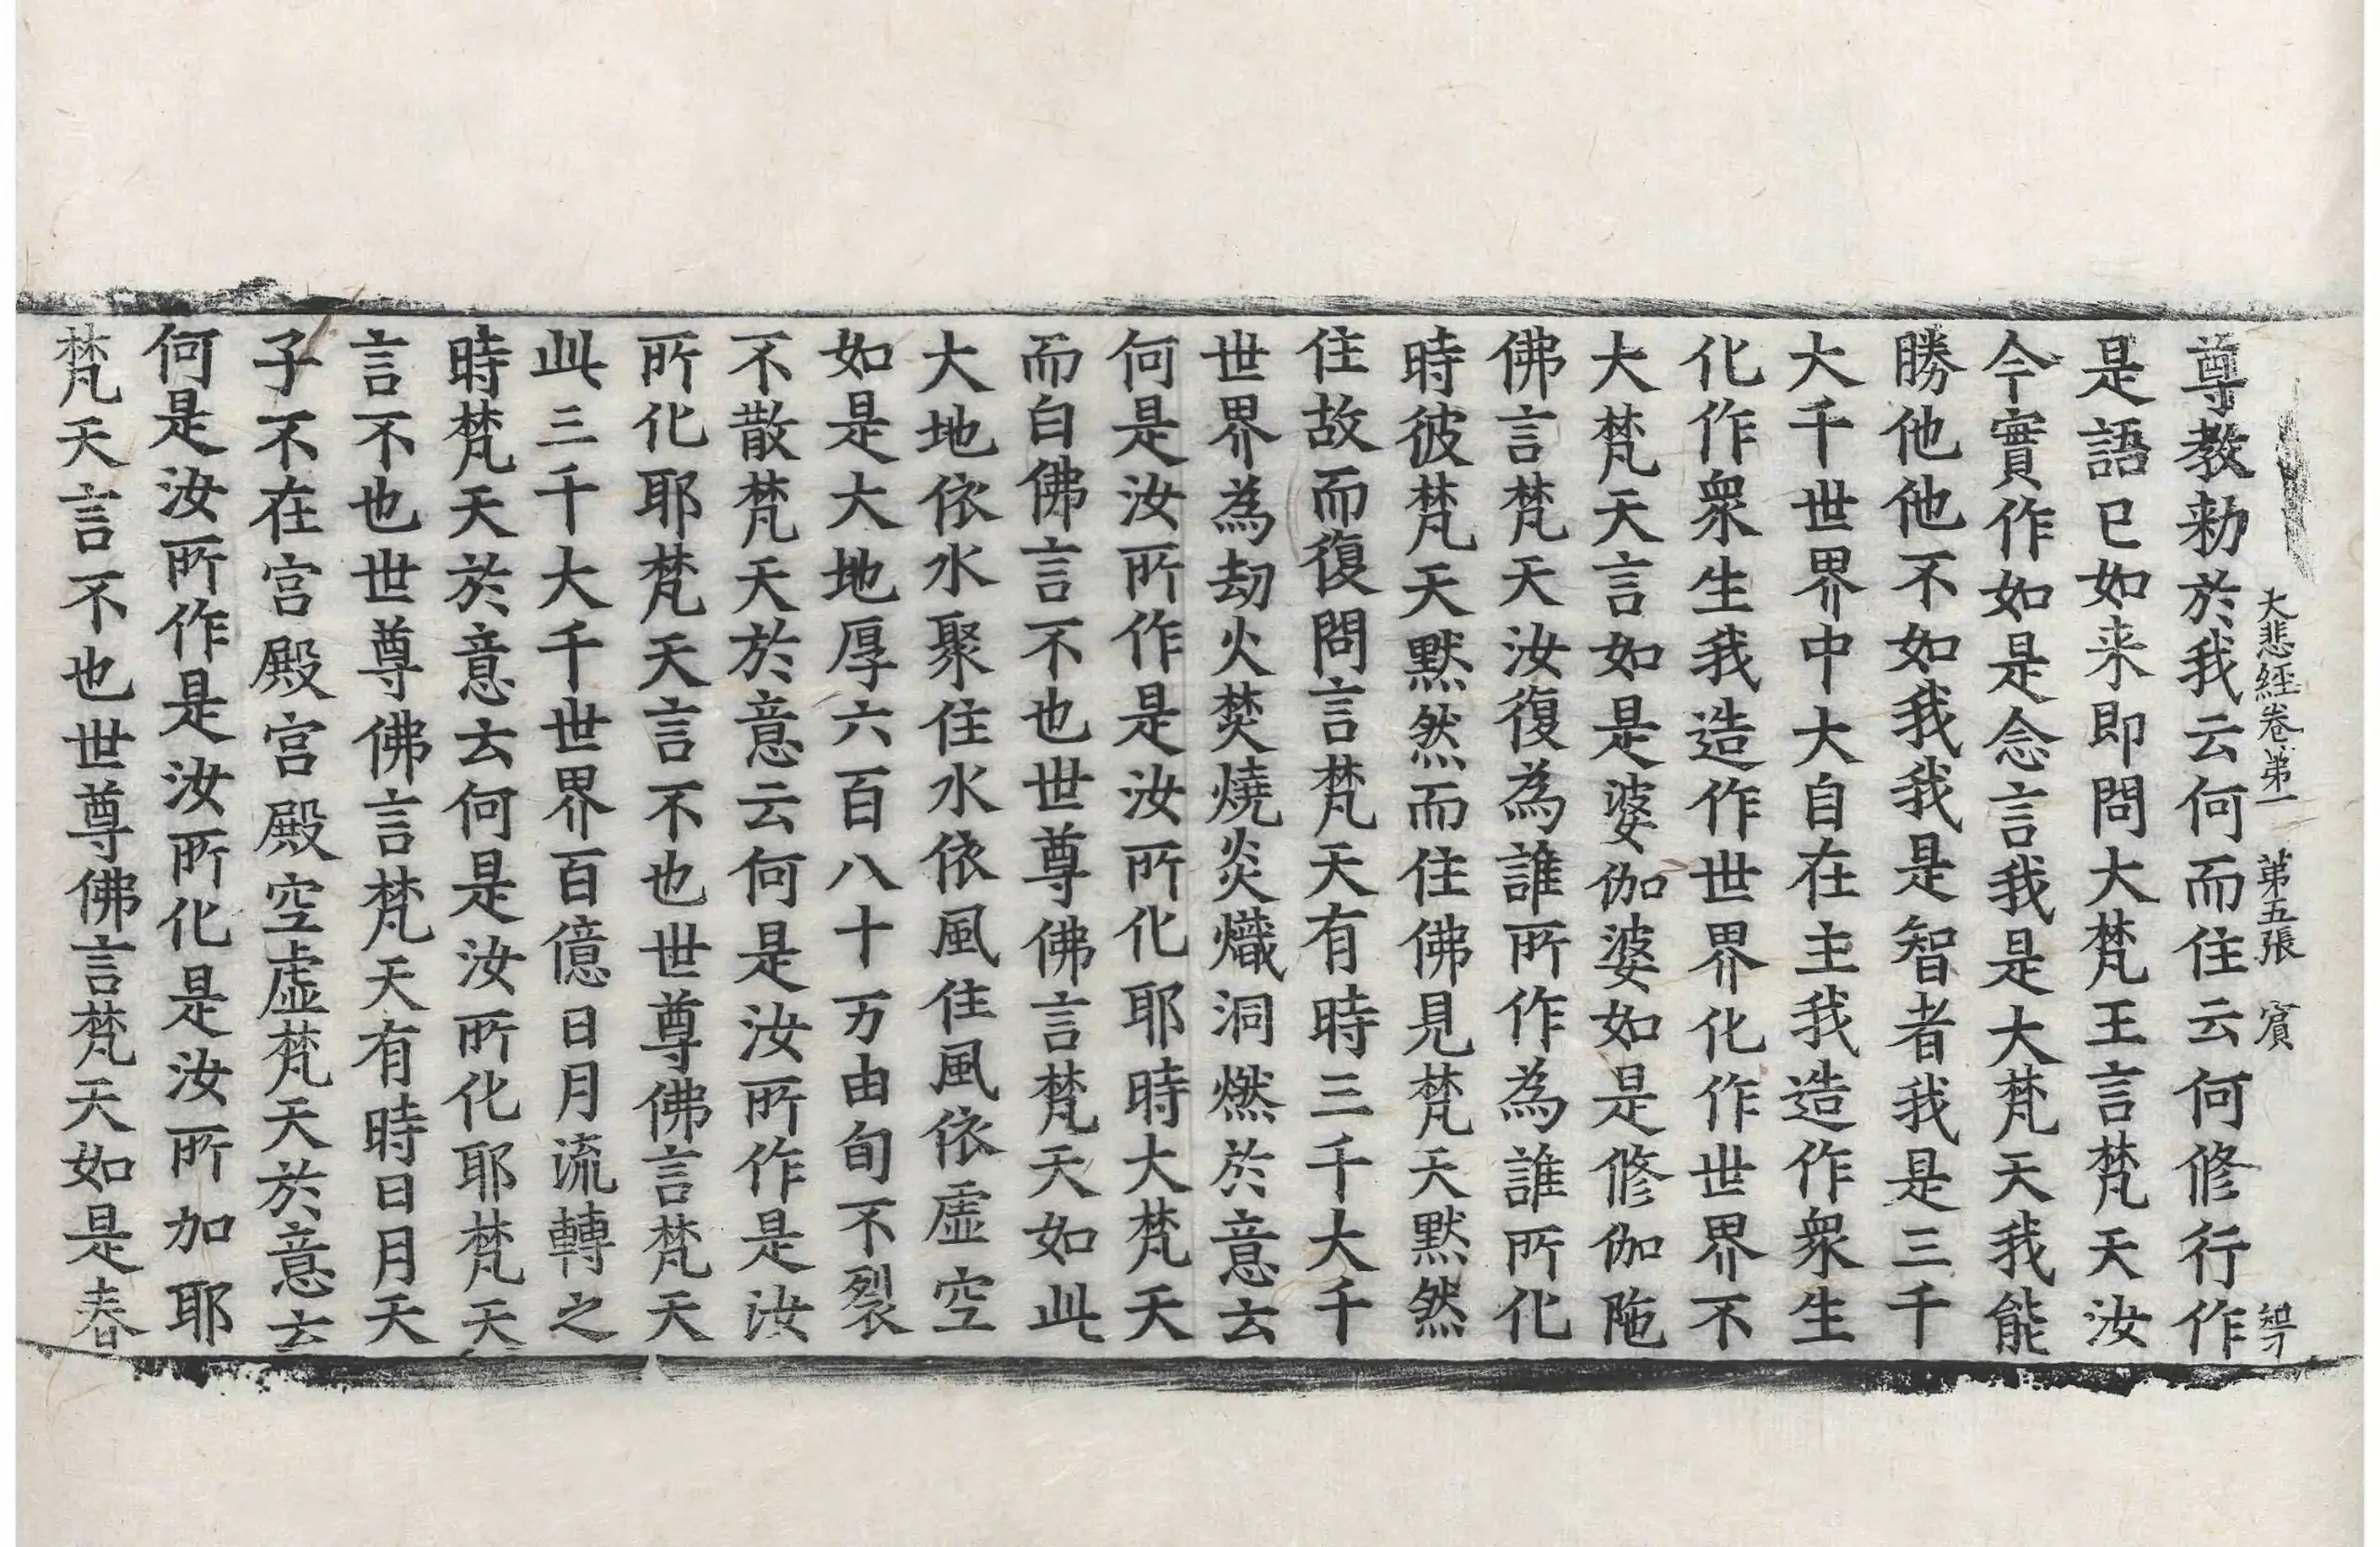 大悲經卷第一 第五張 賓 智刁
尊教勑於我云何而住云何修行作
是語已如来即問大梵王言梵天汝
今實作如是念言我是大梵天我能
勝他他不如我我是智者我是三千
大千世界中大自在主我造作衆生
化作衆生我造作世界化作世界不
大梵天言如是婆伽婆如是修伽陁
佛言梵天汝復為誰所作為誰所化
時彼梵天黙然而住佛見梵天黙然
住故而復問言梵天有時三千大千
世界為劫火焚燒炎熾洞燃於意云
何是汝所作是汝所化耶時大梵天
而白佛言不也世尊佛言梵天如此
大地依水聚住水依風住風依虛空
如是大地厚六百八十万由旬不裂
不散梵天於意云何是汝所作是汝
所化耶梵天言不也世尊佛言梵天
此三千大千世界百億日月流轉之
時梵天於意云何是汝所化耶梵天
言不也世尊佛言梵天有時日月天
子不在宮殿宮殿空虛梵天於意云
何是汝所作是汝所化是汝所加耶
梵天言不也世尊佛言梵天如是春